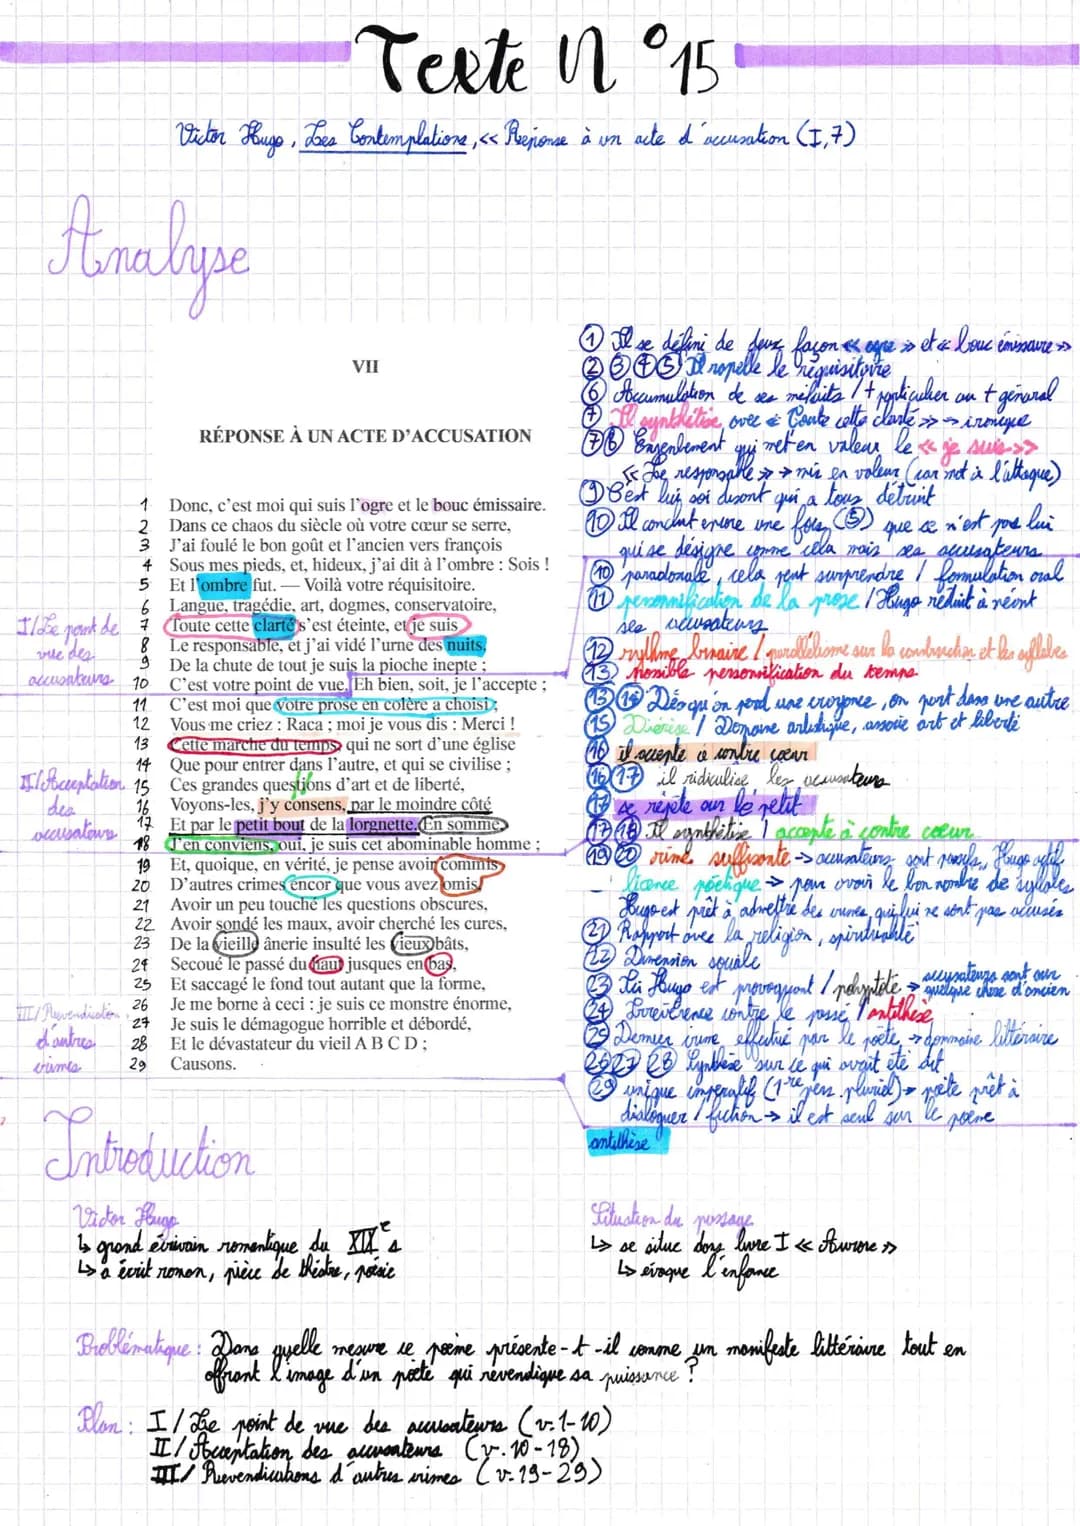 Texte N°15
Victor Hugo, Les Contemplations, << Réponse à un acte d'accusation (I,7)
Analyse
VII
RÉPONSE À UN ACTE D'ACCUSATION
1 Donc, c'est moi qui suis l'ogre et le bouc émissaire.
2 Dans ce chaos du siècle où votre cœur se serre,
3 J'ai foulé le bon goût et l'ancien vers françois
4 Sous mes pieds, et, hideux, j'ai dit à l'ombre : Sois !
5 Et l'ombre fut. — Voilà votre réquisitoire.
6 Langue, tragédie, art, dogmes, conservatoire,
7 Toute cette clarté s'est éteinte, et je suis
8 Le responsable, et j'ai vidé l'urne des nuits,
9 De la chute de tout je suis la pioche inepte ;
10 C'est votre point de vue. Eh bien, soit, je l'accepte ;
11 C'est moi que votre prose en colère a choisi ;
12 Vous me criez : Raca ; moi je vous dis : Merci !
13 Cette marche du temps, qui ne sort d'une église
14 Que pour entrer dans l'autre, et qui se civilise ;
15 Ces grandes questions d'art et de liberté,
16 Voyons-les, j'y consens, par le moindre côté
17 Et par le petit bout de la lorgnette. En somme,
18 J'en conviens, oui, je suis cet abominable homme ;
19 Et, quoique, en vérité, je pense avoir commis
20 D'autres crimes encor que vous avez omis,
21 Avoir un peu touché les questions obscures,
22 Avoir sondé les maux, avoir cherché les cures,
23 De la vieille ânerie insulté les vieux bâts,
24 Secoué le passé du haut jusques en bas,
25 Et saccagé le fond tout autant que la forme,
26 Je me borne à ceci : je suis ce monstre énorme,
27 Je suis le démagogue horrible et débordé,
28 Et le dévastateur du vieil A B C D ;
29 Causons.
I/Le point de
vue des
accusateurs
II/Acceptation
des
accusateurs
III/Revendication
d'autres
crimes
① Il se défini de deux façon << ogre >> et << bouc émissaire >>
② ③ ④ ⑤ Il rapelle le réquisitoire
⑥ Accumulation de ses méfaits / + particulier au + général
⑦ Il synthétise avec << Toute cette clarté >> → ironique
⑦⑧ Enjenbement qui met en valeur le << je suis >>
<< Le responsable >> → mis en valeur (car mot à l'attaque)
⑨ C'est lui soi disont qui a tous détruit
⑩ Il conclut encore une fois (⑤) que ce n'est pas lui
qui se désigne comme cela mais ses accusateurs
⑩ paradoxale, cela peut surprendre / formulation oral
⑪ personnification de la prose / Hugo réduit à néant
ses accusateurs
⑫ rythme binaire / parallélisme sur la construction et les syllabes
⑬ possible personification du temps
⑬ ⑭ Dès qu'on perd une croyance, on part dans une autre
⑮ Diérèse / Domaine artistique, associe art et liberté
⑯ il accepte à contre cœur
⑯ ⑰ il ridiculise les accusateurs
⑰ se répète sur le petit
⑰ ⑱ Il synthétise / accepte à contre cœur
⑲ ⑳ rime suffisante → accusateurs sont passifs, Hugo actif
licence poétique → pour avoir le bon nombre de syllabes
Hugo est prêt à admettre des crimes qui lui ne sont pas accusés
㉑ Rapport avec la religion, spiritualité
㉒ Dimension sociale
㉓ Ici Hugo est provoquant / polyptote → accusateurs sont sur
quelque chose d'ancien
㉔ Irrévérence contre le passé / antithèse
㉕ Dernier crime effectué par le poète → dommaine littéraire
㉖ ㉗ ㉘ Synthèse sur ce qui avait été dit
㉙ unique impératif (1ʳᵉ pers. pluriel) → poète prêt à
dialoguer / fiction → il est seul sur le poème
antithèse
Introduction
Victor Hugo
↳ grand écrivain romantique du XIXᵉ s
↳ a écrit roman, pièce de théâtre, poésie
Situation du passage
↳ se situe dans livre I << Aurore >>
↳ évoque l'enfance
Problématique : Dans quelle mesure ce poème présente-t-il comme un manifeste littéraire tout en
offrant l'image d'un poète qui revendique sa puissance ?
Plan : I/ Le point de vue des accusateurs (v.1-10)
II/ Acceptation des accusateurs (v.10-18)
III/ Revendications d'autres crimes (v.19-29)